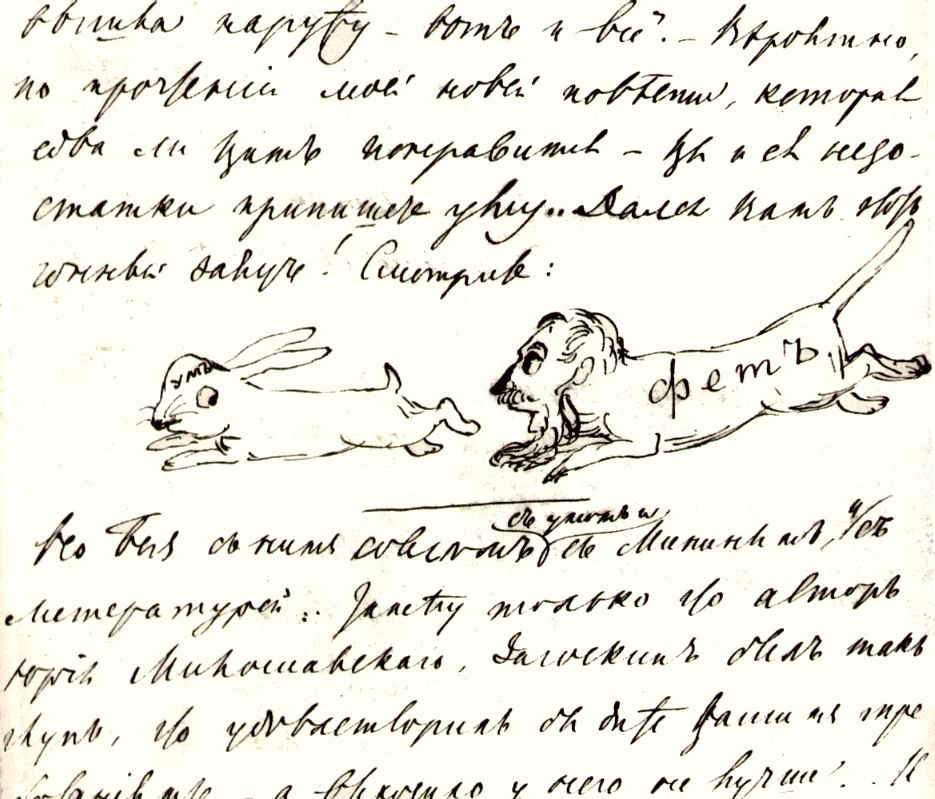 вышла наружу – вотъ и всё". – Вѣроятно,
по прочтеніи моей новой повѣсти, которая
едва ли Вамъ понравится – Вы и ея недо-
статки припишете уму... Дался Вамъ этотъ
гонный заяцъ! Смотрите:
умъ
фетъ
съ умомъ и
Богъ съ нимъ совсѣмъ съ Мининымъ, и съ
литературой. Замѣчу только что авторъ
Юрія Милославскаго, Загоскинъ былъ такъ
глупъ, что удовлетворилъ бы Вашимъ тре
бованіямъ – а вышло у него не лучше.